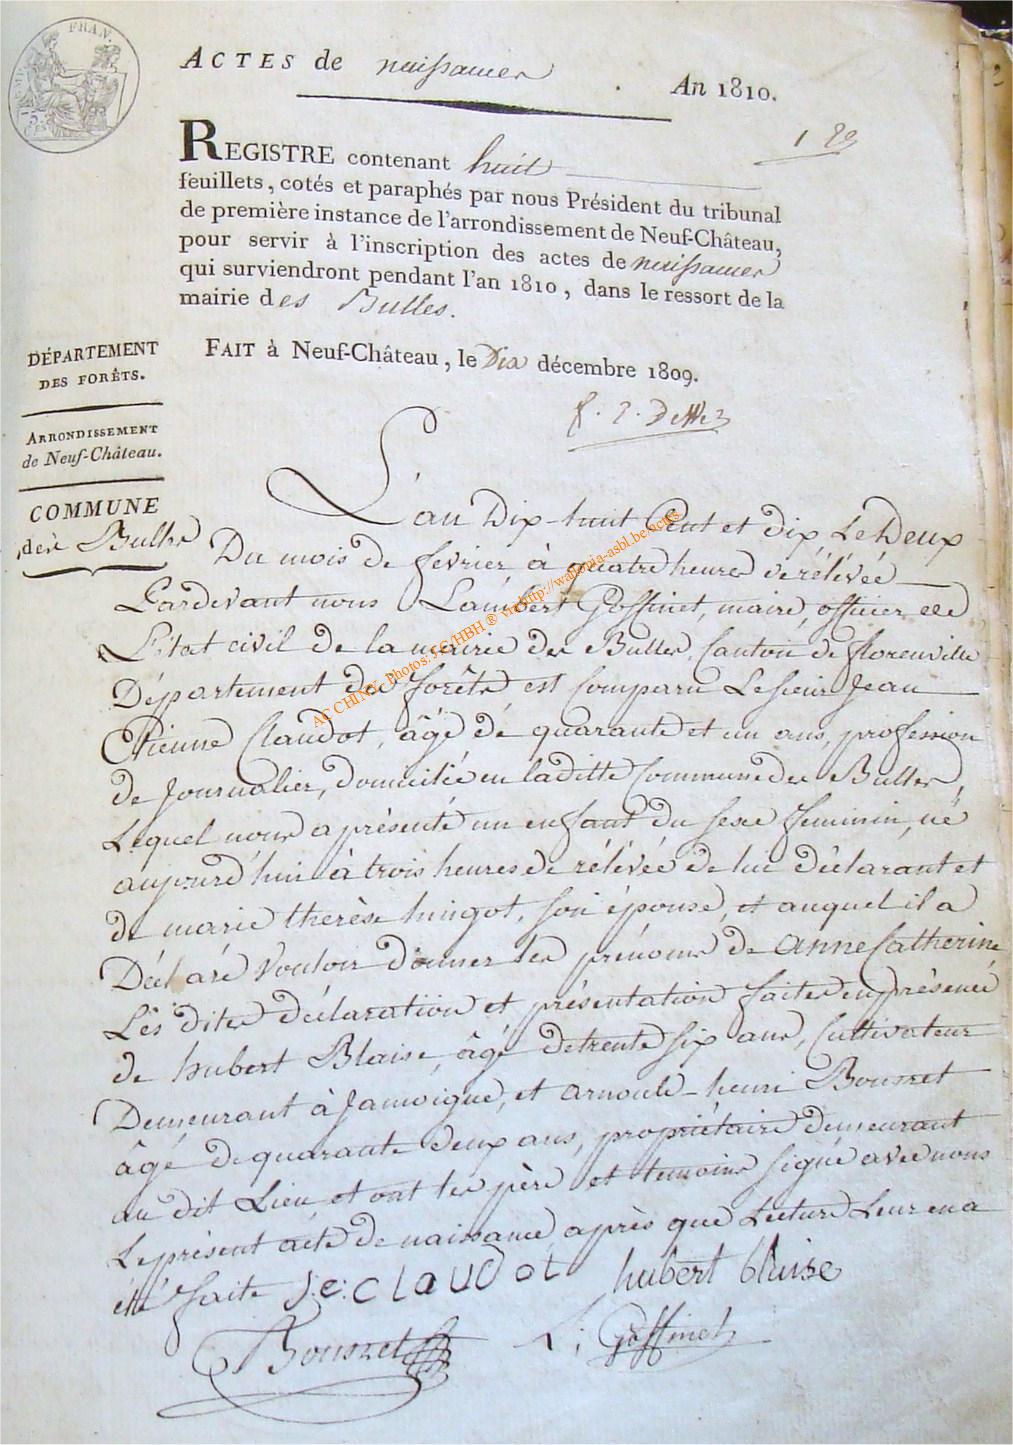 FRAN.
ACTES de naissances
An 1810.
REGISTRE contenant huit
feuillets, cotés et paraphés par nous Président du tribunal
de première instance de l'arrondissement de Neuf-Château,
pour servir à l'inscription des actes de naissances
qui surviendront pendant l'an 1810, dans le ressort de la
mairie des Bulles.
FAIT à Neuf-Château, le Dix décembre 1809.
DÉPARTEMENT
DES FORÊTS.
ARRONDISSEMENT
de Neuf-Château.
COMMUNE
des Bulles
L'an Dix-huit Cent et dix Le Deux
Du mois de fevrier à quatre heures de rélévée
Pardevant nous Lambert Goffinet, maire, officier de
L'état civil de la mairie des Bulles, Canton de florenville
Département des forêts est Comparu Le sieur Jean
Etienne Claudot, âgé de quarante et un ans, profession
de Journalier, domicilié en laditte Commune des Bulles,
Lequel nous a présenté un enfant du sexe feminin, né
aujourd'hui à trois heures de rélévée de lui déclarant et
de marie therèse hingot, son épouse, et auquel il a
Déclaré vouloir donner les prénoms de anne Catherine
Lès dites déclaration et présentation faites en présence
de hubert Blaise, âgé de trente six ans, Cultivateur
Demeurant à Jamoigne, et arnould-henri Bousret
âgé de quarante deux ans, propriétaire demeurant
au dit Lieu, et ont les père et temoins signé avec nous
Le présent acte de naissance, après que Lecture Leur en a
été faite J:e: Claudot hubert blaise
Bousret L: Goffinet
AC CHINY. Photos: J-C/HBH ® via http://wallonia-asbl.be/actes